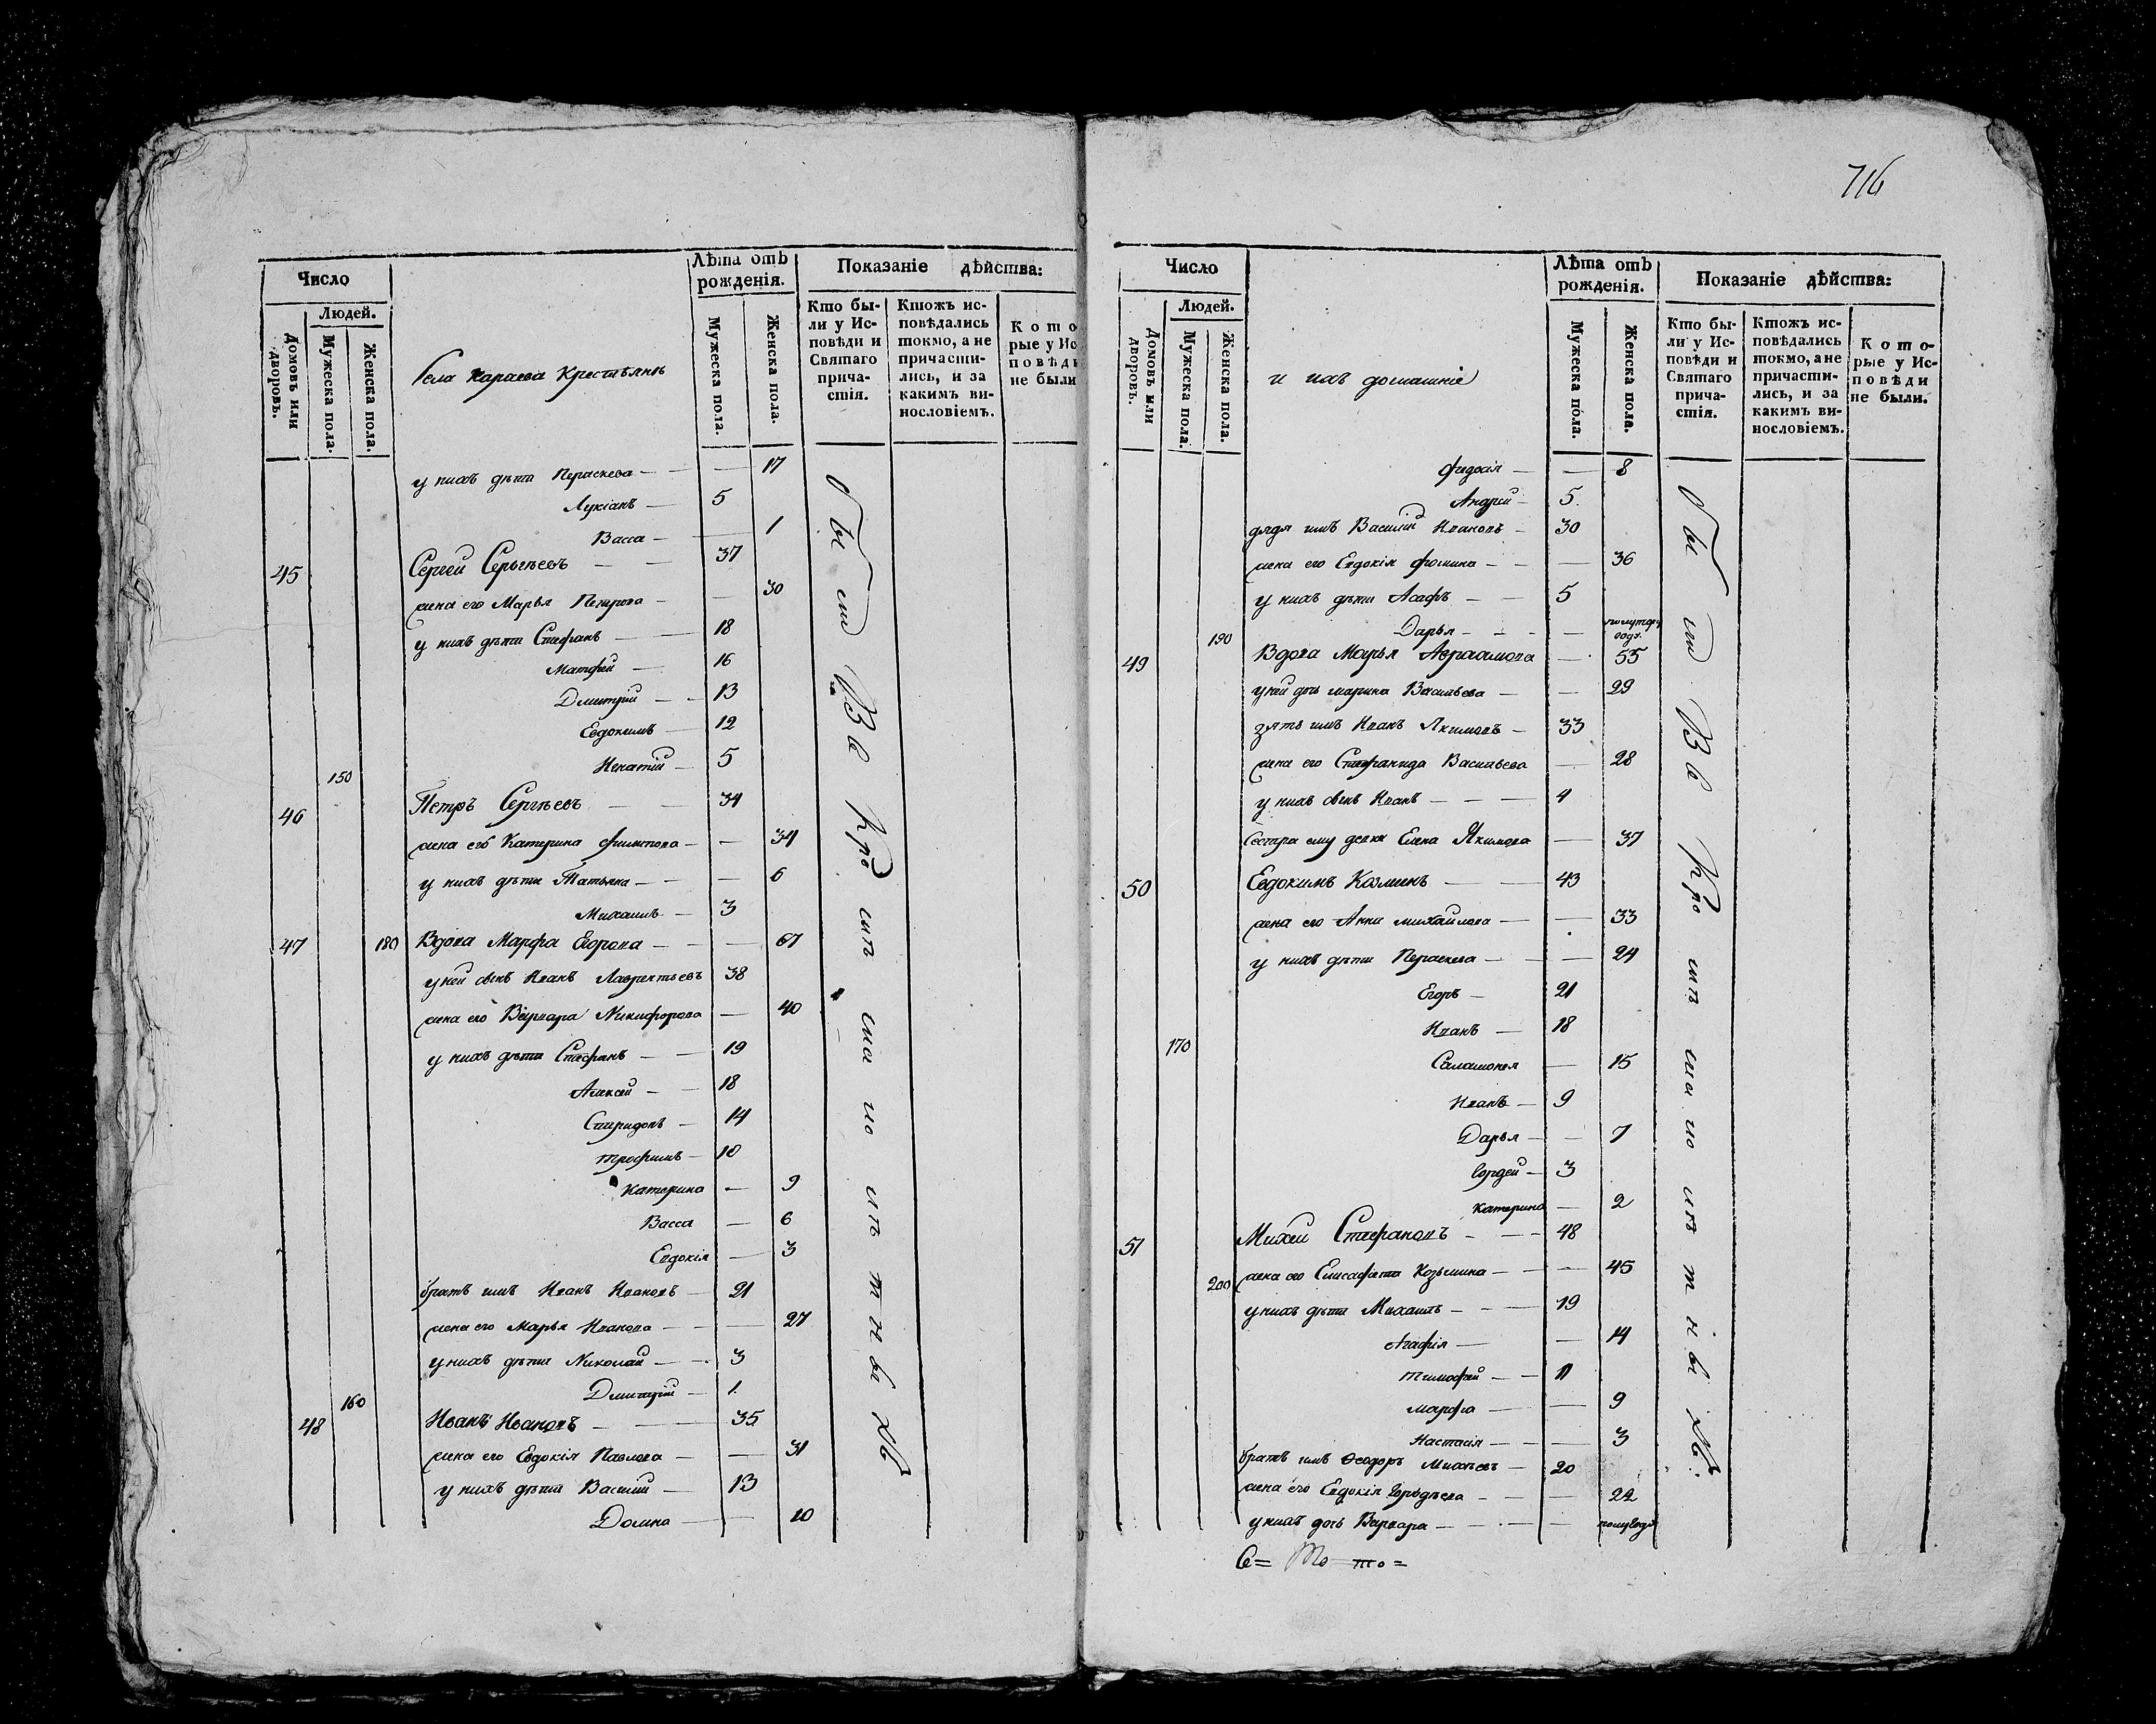 Число
Людей.
Домовъ или дворовъ.
Мужеска пола.
Женска пола.
Села Караева Крестьянъ
Лѣта отъ рожденія.
Мужеска пола.
Женска пола.
Показаніе дѣйства:
Кто бы-
ли у Ис-
повѣди и
Святаго
прича-
стія.
Ктожъ ис-
повѣдались
токмо, а не
причасти-
лись, и за
какимъ ви-
нословіемъ.
Кото
рые у Ис
повѣди
не были
у нихъ дѣти Пераскева — — 17
Лукіанъ — 5
Васса — — 1
45 Сергей Сергѣевъ — — 37
жена его Марья Петрова — — 30
у нихъ дѣти Стефанъ — 18
Матфей — 16
Дмитрій — 13
Евдокимъ — 12
150 Игнатій — 5
46 Петръ Сергѣевъ — — 34
жена его Катерина Филипова — — 34
у нихъ дѣти Татьяна — — 6
Михаилъ — 3
47 180 Вдова Марфа Егорова — — 67
у ней сынъ Иванъ Лаврентьевъ 38
жена его Варвара Никифорова — 40
у нихъ дѣти Стефанъ — — 19
Алексей — 18
Спиридонъ — 14
Трофимъ — 10
Катерина — 9
Васса — 6
Евдокія — 3
братъ имъ Иванъ Ивановъ — 21
жена его Марья Иванова — — 27
у нихъ дѣти Николай — 3
160 Дмитрій — 1
48 Иванъ Ивановъ — — 35
жена его Евдокія Павлова — — 31
у нихъ дѣти Василий — 13
Домна — — 10
716
Число
Людей.
Домовъ или дворовъ.
Мужеска пола.
Женска пола.
и ихъ домашніе
Лѣта отъ рожденія.
Мужеска пола.
Женска пола.
Показаніе дѣйства:
Кто бы-
ли у Ис-
повѣди и
Святаго
прича-
стія.
Ктожъ ис-
повѣдались
токмо, а не
причасти-
лись, и за
какимъ ви-
нословіемъ.
Кото-
рые у Ис-
повѣди
не были.
Федосія — — 8
Андрей — 5.
дядя имъ Василій Ивановъ — 30
жена его Евдокія Фомина — — 36
у нихъ дѣти Асафъ — — 5
190 Дарья — — полутора года.
49 Вдова Марья Авраамова — 55
у ней дочь марина Васильева — — 29
зять имъ Иванъ Якимовъ — 33
жена его Стефанида Васильева — 28
у нихъ сынъ Иванъ — — 4
Сестра ему девка Елена Якимова — 37
50 Евдокимъ Козминъ — — 43
жена его Анна михайлова — — 33
у нихъ дѣти Пераскева — — 24
Егоръ — 21
Иванъ — 18
170 Саламония — 15
Иванъ — 9
Дарья — — 7
Гордей — 3
Катерина — 2
51 Михей Стефановъ — — 48
200 жена его Елисафета Козьмина — — 45
у нихъ дѣти Михаилъ — — 19
Агафія — — 14
Тимофей — — 11
марфа — — 9
Настасія — — 3
братъ имъ Ѳеодоръ Михѣевъ — 20
жена его Евдокія Гордѣева — — 22
у нихъ дочь Варвара — — полугода